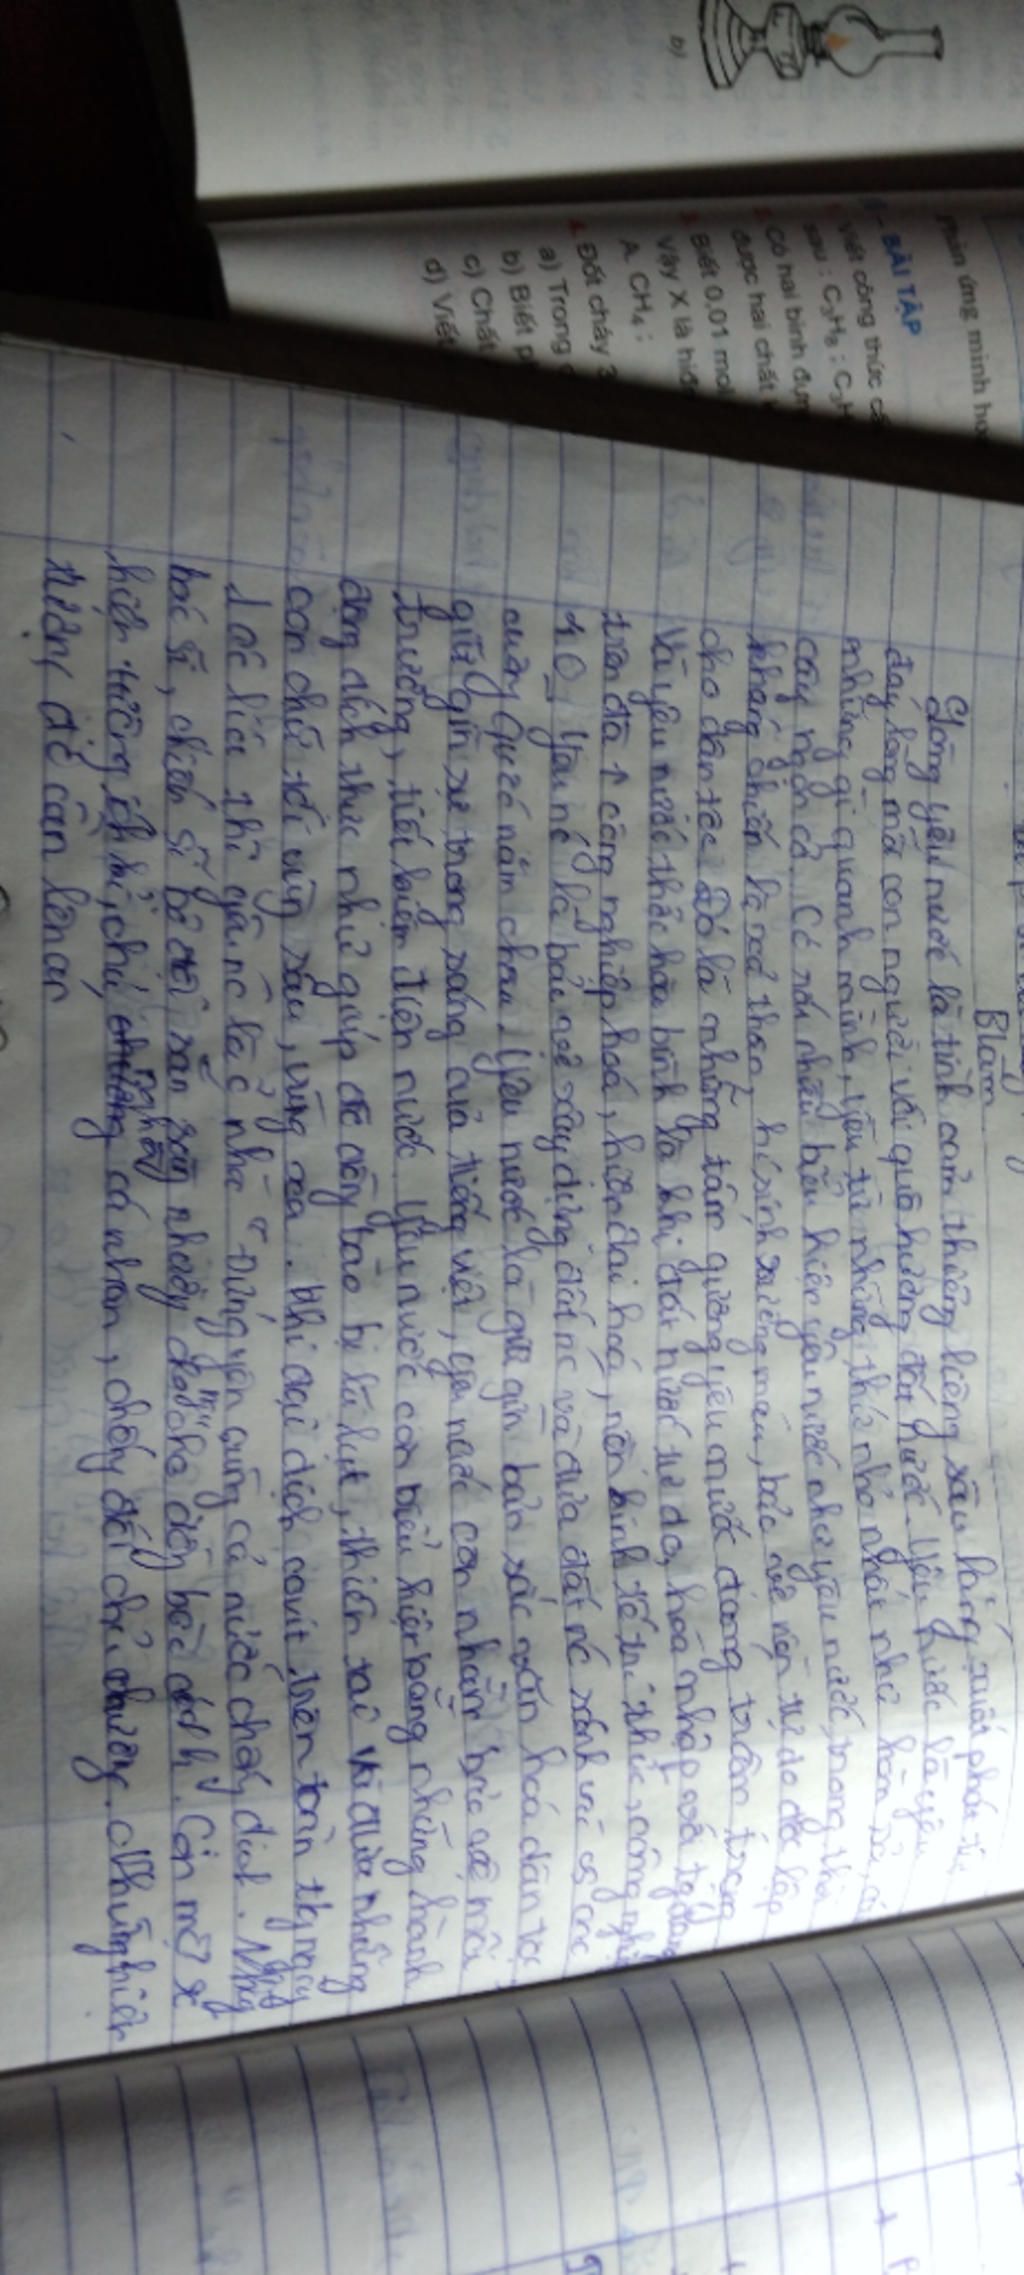 b)
Phản ứng minh ho
- BÀI TẬP
Viết công thức cấ
sau : C₃H₈ ; C₃H
Có hai bình đựn
được hai chất
Biết 0,01 mol
Vậy X là hiđ
A. CH₄ ;
4. Đốt cháy 3
a) Trong
b) Biết p
c) Chất
d) Viết
Blàm
Lòng yêu nước là tình cảm thiêng liêng, sâu lắng xuất phát từ
đáy lòng mỗi con người với quê hương đất nước. Yêu nước là yêu
những gì quanh mình, yêu từ những thứ nhỏ nhất như hòn
cây ngọn cỏ. Có rất nhiều biểu hiện yêu nước như yêu nước trong thời
kháng chiến là xả thân, hi sinh xương máu, bảo vệ nền tự do độc lập
cho dân tộc. Đó là những tấm gương yêu nước đáng trân trọng
Và yêu nước thời hoà bình là khi đất nước tự do, hoà nhập với tg đang
trên đà công nghiệp hoá, hiện đại hoá, nền kinh tế tri thức, công nghiệp
4.0, Yêu nc là bảo vệ xây dựng đất nc và đưa đất nc sánh với các
cường quốc năm châu. Yêu nước là giữ gìn bản sắc văn hoá dân tộc
giữ gìn sự trong sáng của tiếng việt, yêu nước còn nhằm bảo vệ môi
trường, tiết kiệm điện nước. Yêu nước còn biểu hiện bằng những hành
động đích thực như giúp đỡ đồng bào bị lũ lụt, thiên tai và đưa những
con chữ tới vùng sâu, vùng xa. Khi đại dịch covit trên toàn tg ngày
1 ác liệt thì yêu nc là nhà "Đứng yên cùng cả nước chống dịch. Những
bác sĩ, chiến sĩ bộ đội sẵn sàng nhường chỗ cho đồng bào cách li. Còn một
hiện tượng ích kỉ, chỉ nghĩ cá nhân, chống đối chủ trương. Những hiện
tượng đó cần lên án